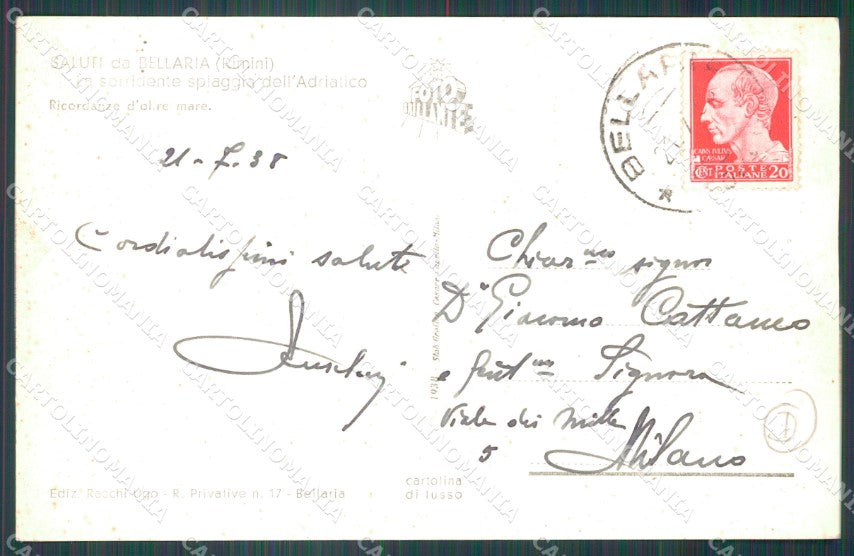 SALUTI da BELLARIA (Rimini)
La sorridente spiaggia dell'Adriatico
Ricordanze d'oltre mare.
FOTO
BRILLANTE
BELLARIA
CAIVS IVLIVS
CAESAR
POSTE
ITALIANE 20
21-7-38
Cordialissimi saluti
Chiar.mo signor
Dr Giacomo Cattaneo
e gent.ma Signora
Viale dei Mille
5 Milano
1
cartolina
di lusso
Ediz. Racchi Ugo - R. Privative n. 17 - Bellaria
CARTOLINOMANIA